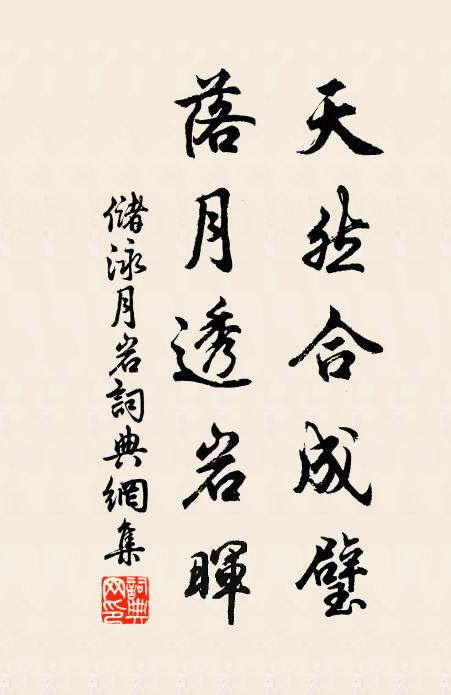 天然合成璧
落月透岩暉
儲泳月岩詞典網集
詞典網印